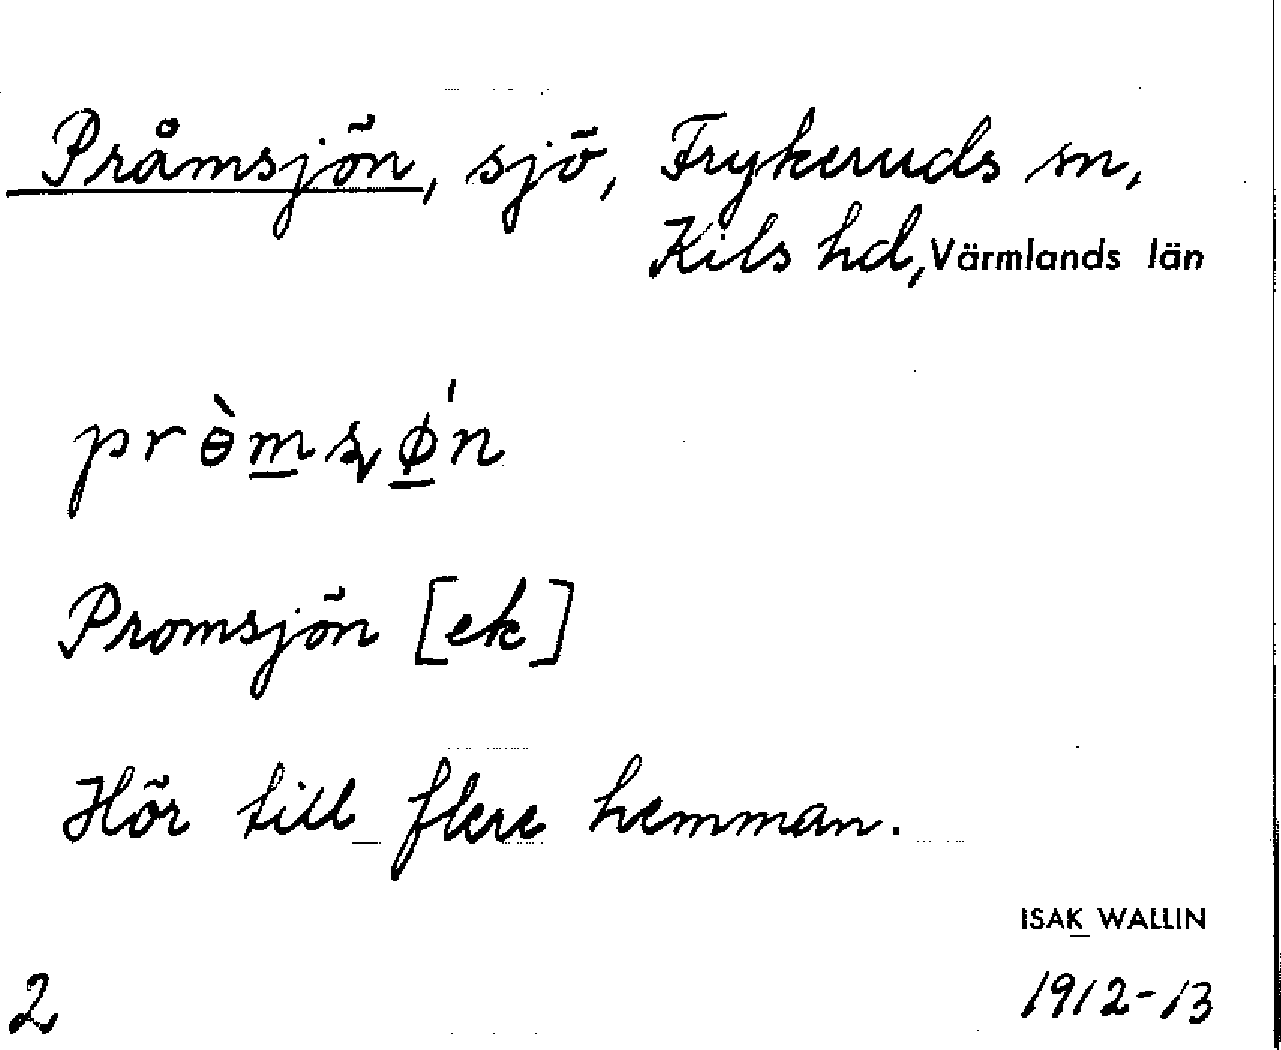 Pråmsjön, sjö, Frykeruds sn,
Kils hd, Värmlands län
prɵ̀msɷø'n
Promsjön [ek]
Hör till flere hemman.
ISAK WALLIN
2 1912-13